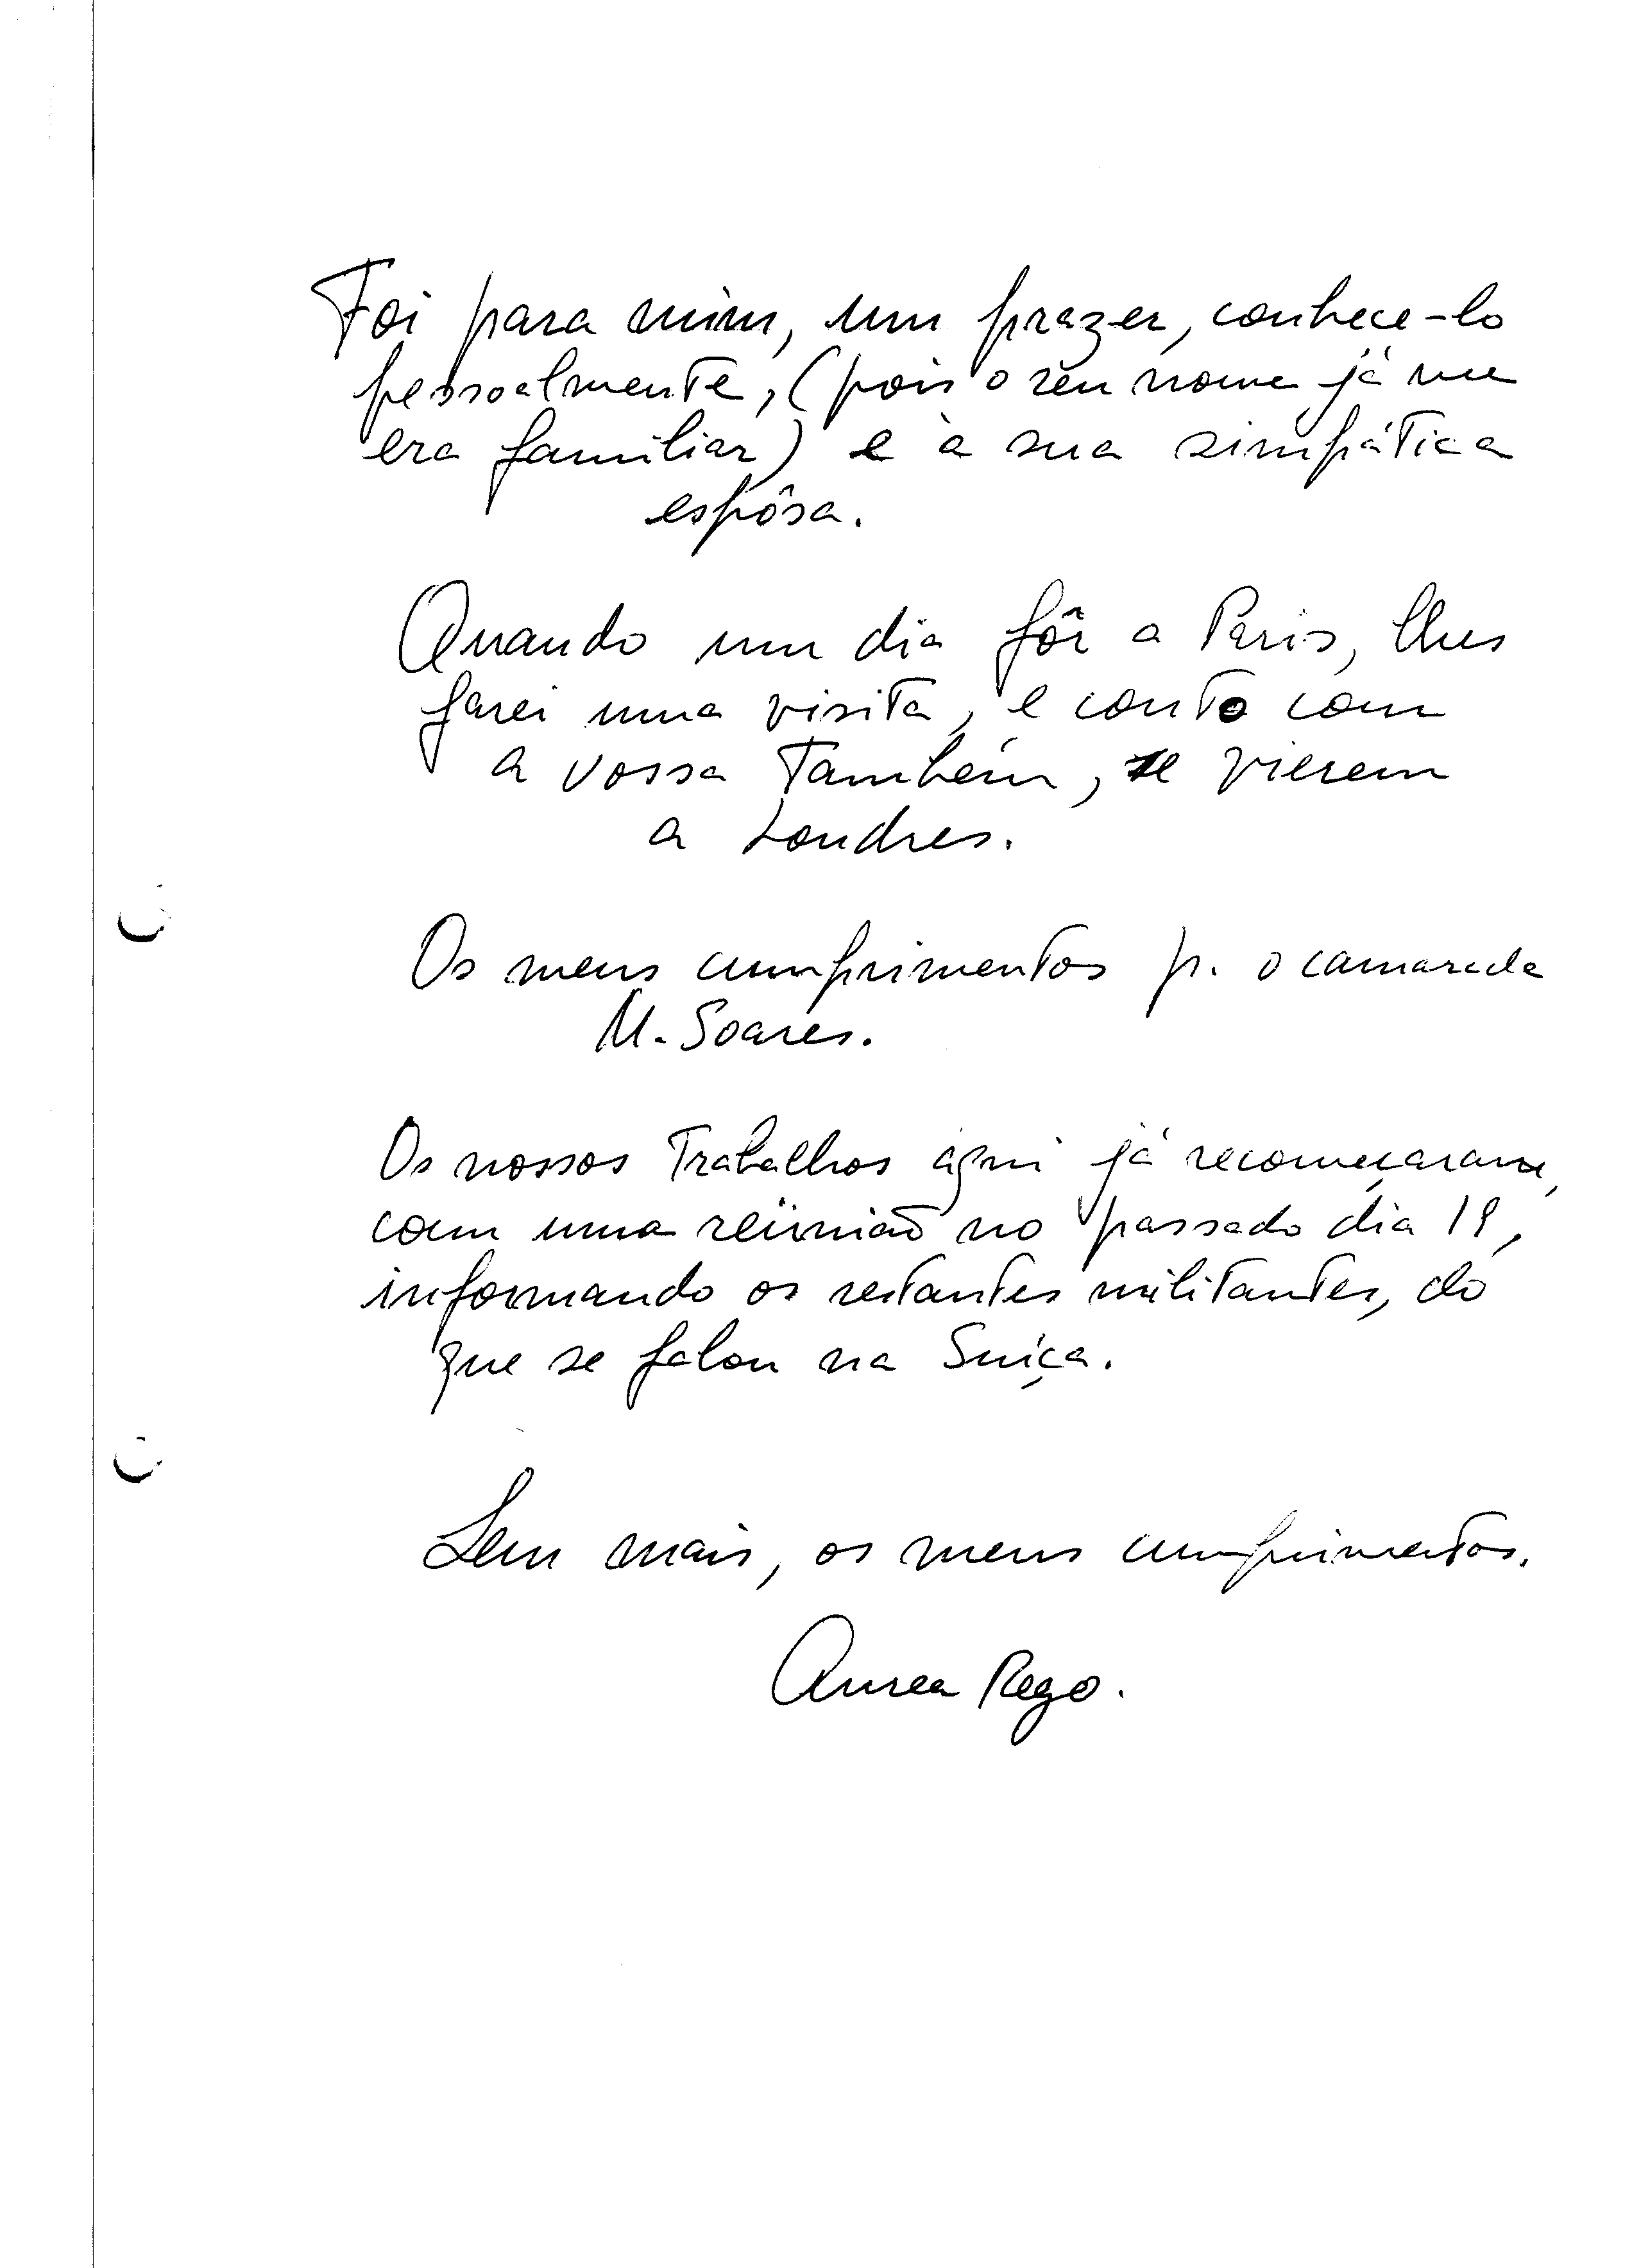 Foi para mim, um prazer, conhece-lo
pessoalmente, (pois o seu nome já me
era familiar) e à sua simpática
espôsa.
Quando um dia fôr a Paris, lhes
farei uma visita, e conto com
a vossa também, se vierem
a Londres.
Os meus cumprimentos p. o camarada
M. Soares.
Os nossos trabalhos aqui já recomeçaram,
com uma reünião no passado dia 19,
informando os restantes militantes, do
que se falou na Suíça.
Sem mais, os meus cumprimentos.
Aurea Rego.